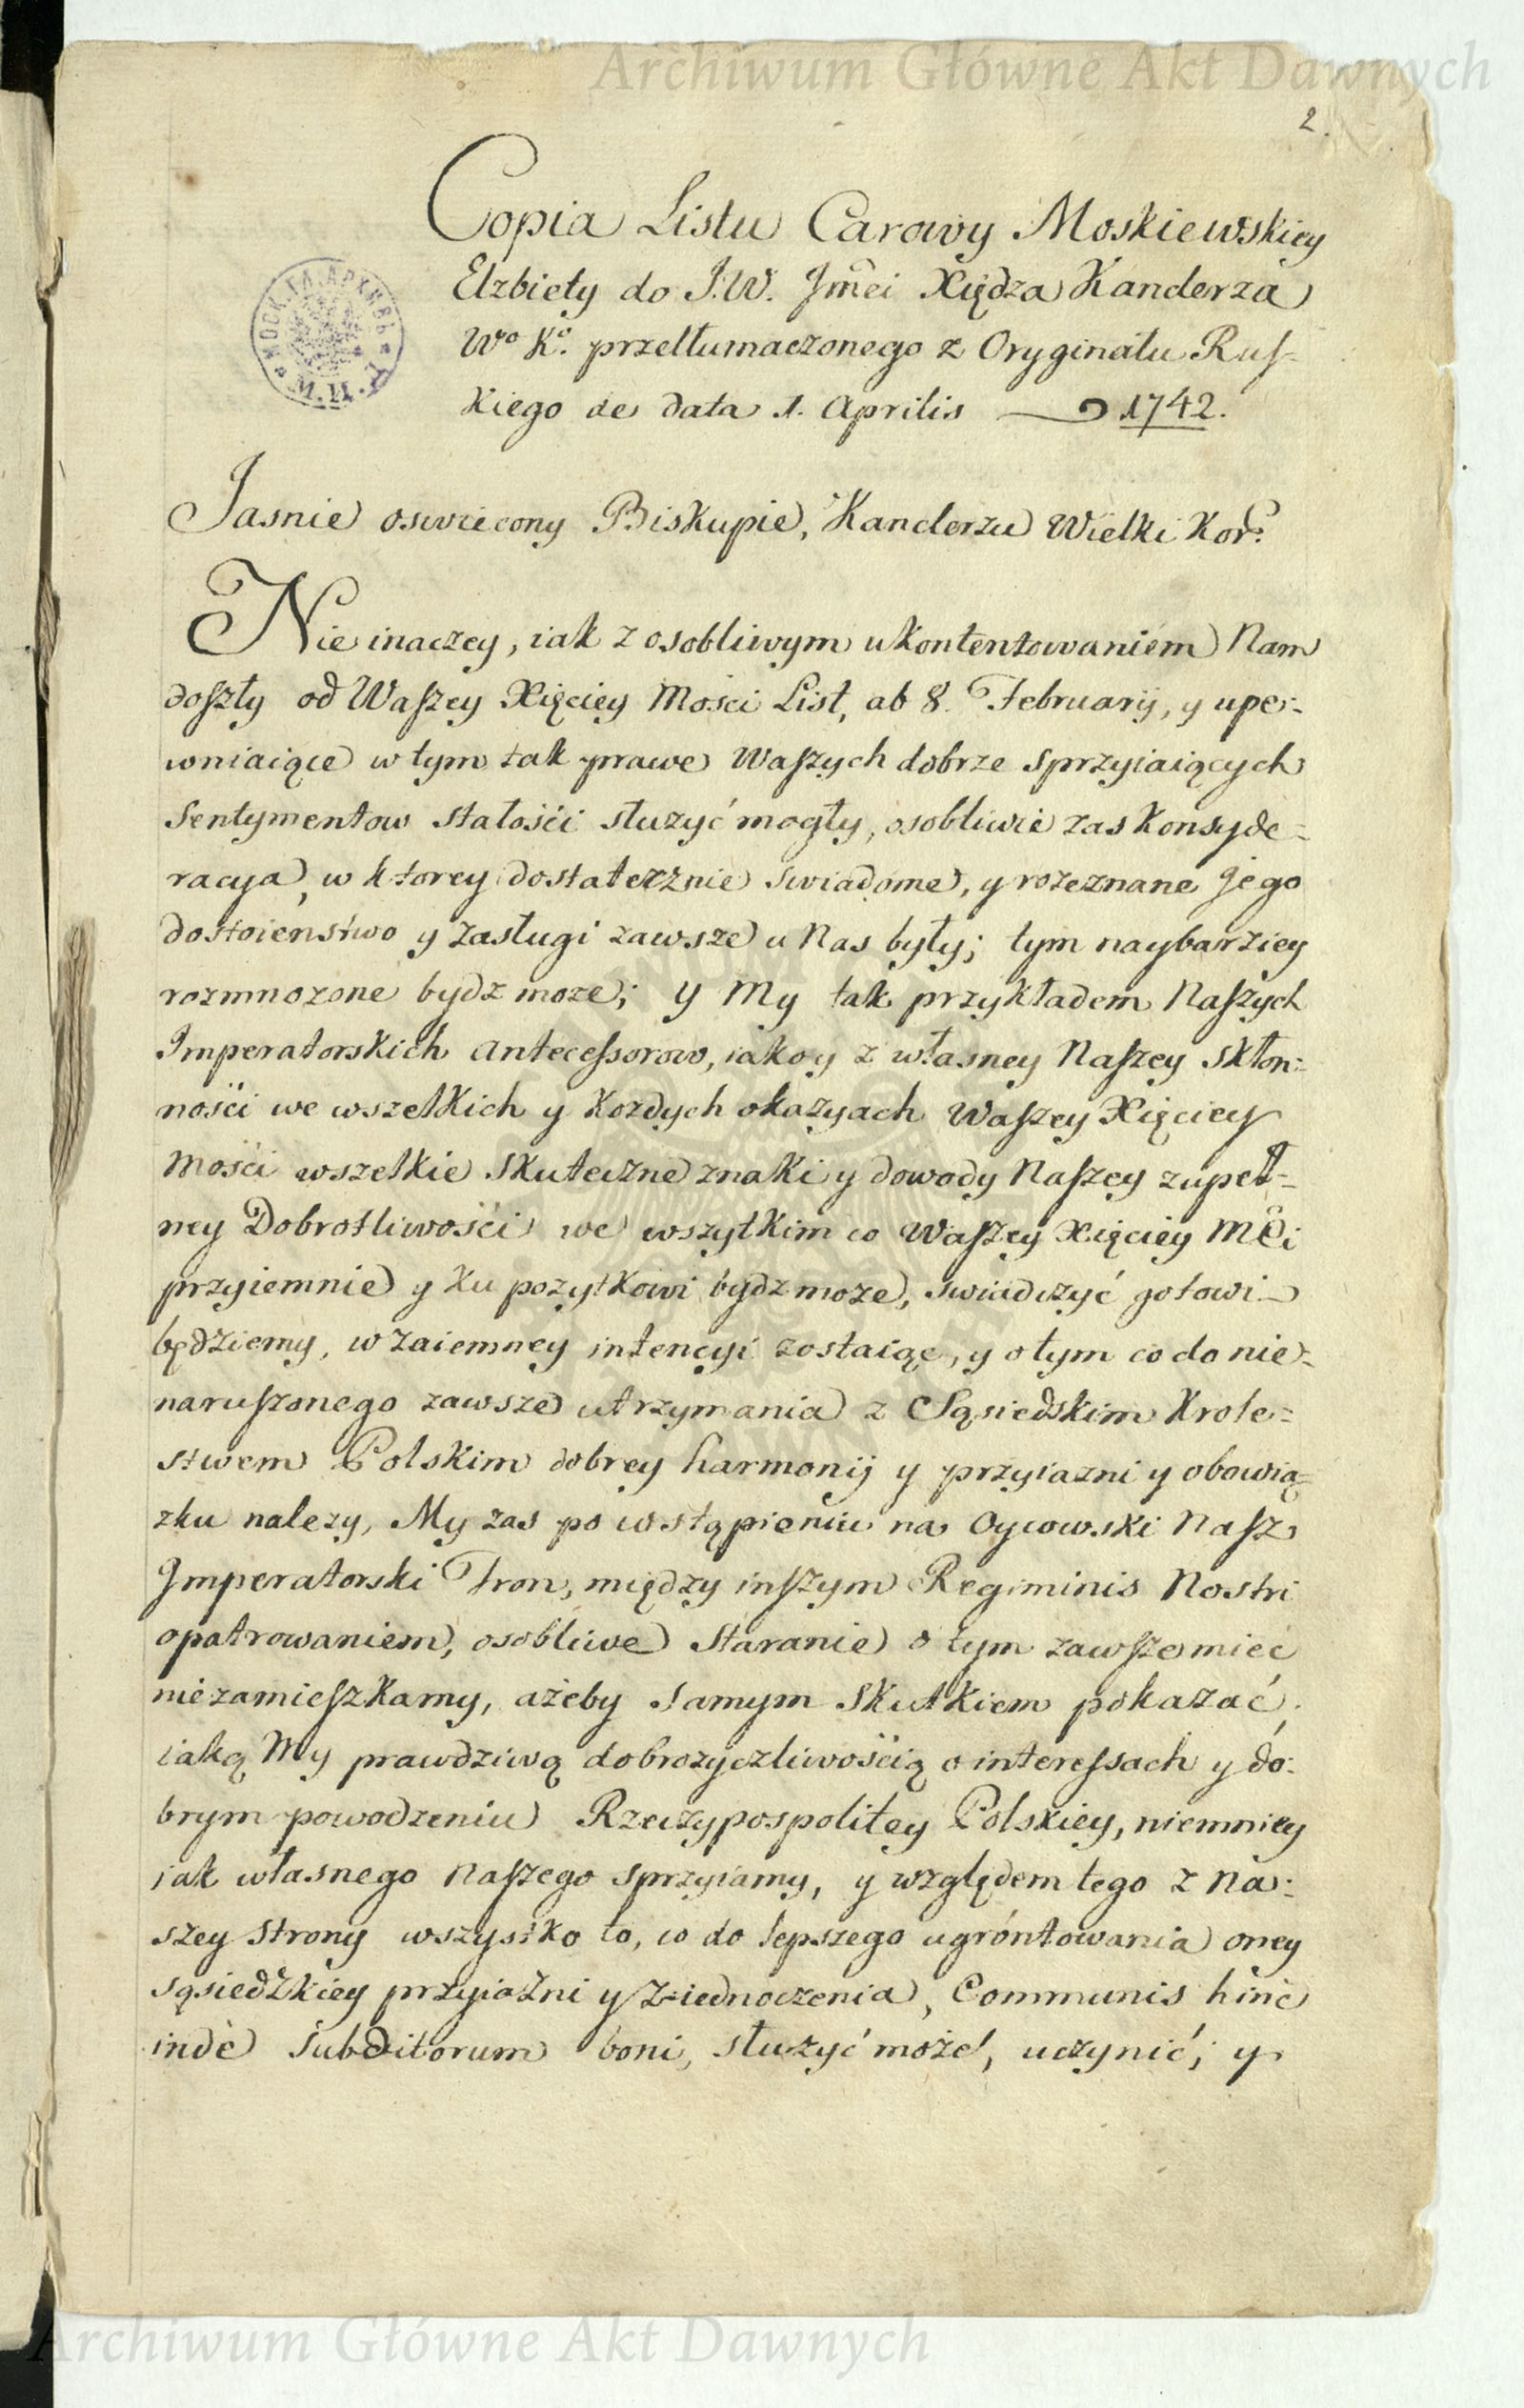 Archiwum Główne Akt Dawnych
2.
Copia Listu Carowy Moskiewskiey
Elzbiety do J.W. Jmci Xiędza Kanclerza
Wo Ko. przetłumaczonego z Oryginału Rus-
kiego de data 1. Aprilis 1742.
Jasnie oswiecony Biskupie, Kanclerzu Wielki Kor.
Nie inaczey, iak z osobliwym ukontentowaniem Nam
doszły od Waszey Xięciey Mosci List, ab 8. February, y upe-
wniaiące w tym tak prawe Waszych dobrze sprzyiaiących
Sentymentow stałośći służyć mogły, osobliwie zas Konsyde-
racya, w ktorey dostatecznie swiadome, y rozeznane Jego
dostoieństwo y zasługi zawsze u Nas były; tym naybarziey
rozmnozone bydz moze; y My tak przykładem Naszych
Imperatorskich Antecessorow, iako y z własney Naszey skłon-
nośći we wszelkich y kozdych okazyach Waszey Xięciey
Mośći wszelkie skuteczne znaki y dowody Naszey zupeł-
ney Dobrotliwośći we wszytkim co Waszey Xięciey Mci
przyiemnie y ku pozytkowi bydz moze, swiadczyć gotowi
będziemy, w zaiemney intencyi zostaiąc, y o tym co do nie-
naruszonego zawsze utrzymania z Sąsiedskim Krole-
stwem Polskim dobrey harmonij y przyiazni y obowią-
zku nalezy, My zas po wstąpieniu na Oycowski Nasz
Imperatorski Tron, między inszym Regiminis Nostri
opatrowaniem, osobliwe staranie o tym zawsze mieć
niezamieszkamy, ażeby samym skutkiem pokazać,
iaką My prawdziwą dobrozyczliwośćią o interessach y do-
brym powodzeniu Rzeczypospolitey Polskiey, niemniey
iak własnego Naszego sprzyiamy, y względem tego z Na-
szey strony wszystko to, co do lepszego ugróntowania oney
sąsiedzkiey przyiaźni y Ziednoczenia, Communis hinc
inde subditorum boni, służyć może, uczynić; y
Archiwum Główne Akt Dawnych